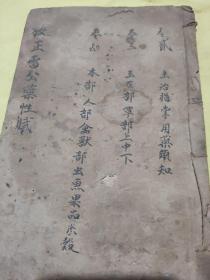 卷贰 主治指掌用藥須知
卷三 玉石部草部上中下
卷四 本部人部禽獸部虫魚果品米穀
校正雷公藥性賦